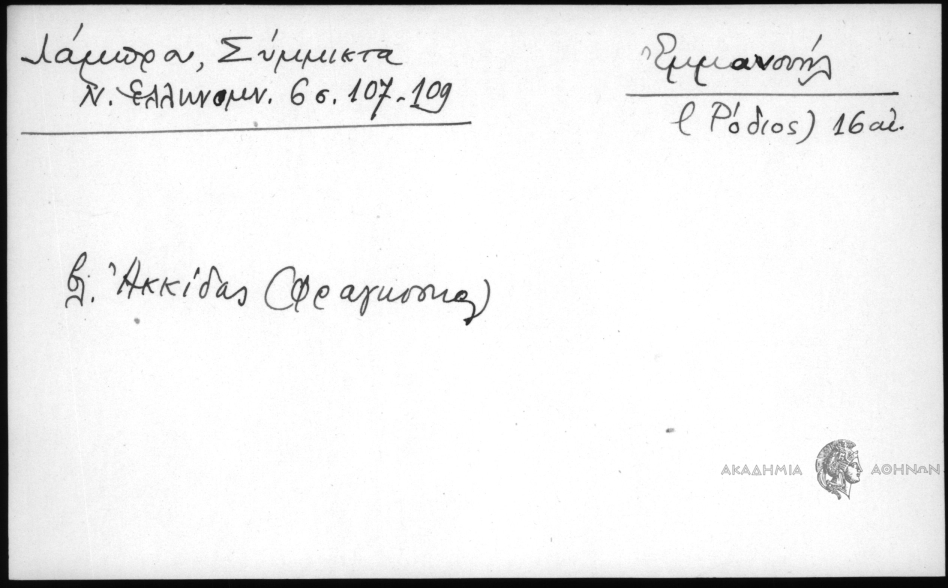 Λάμπρου, Σύμμικτα
Ν. Ἑλληνομν. 6 σ. 107-109
Ἐμμανουήλ
(Ῥόδιος) 16 αἰ.
βλ. Ἀκκίδας (Φραγκῖσκος)
ΑΚΑΔΗΜΙΑ ΑΘΗΝΩΝ